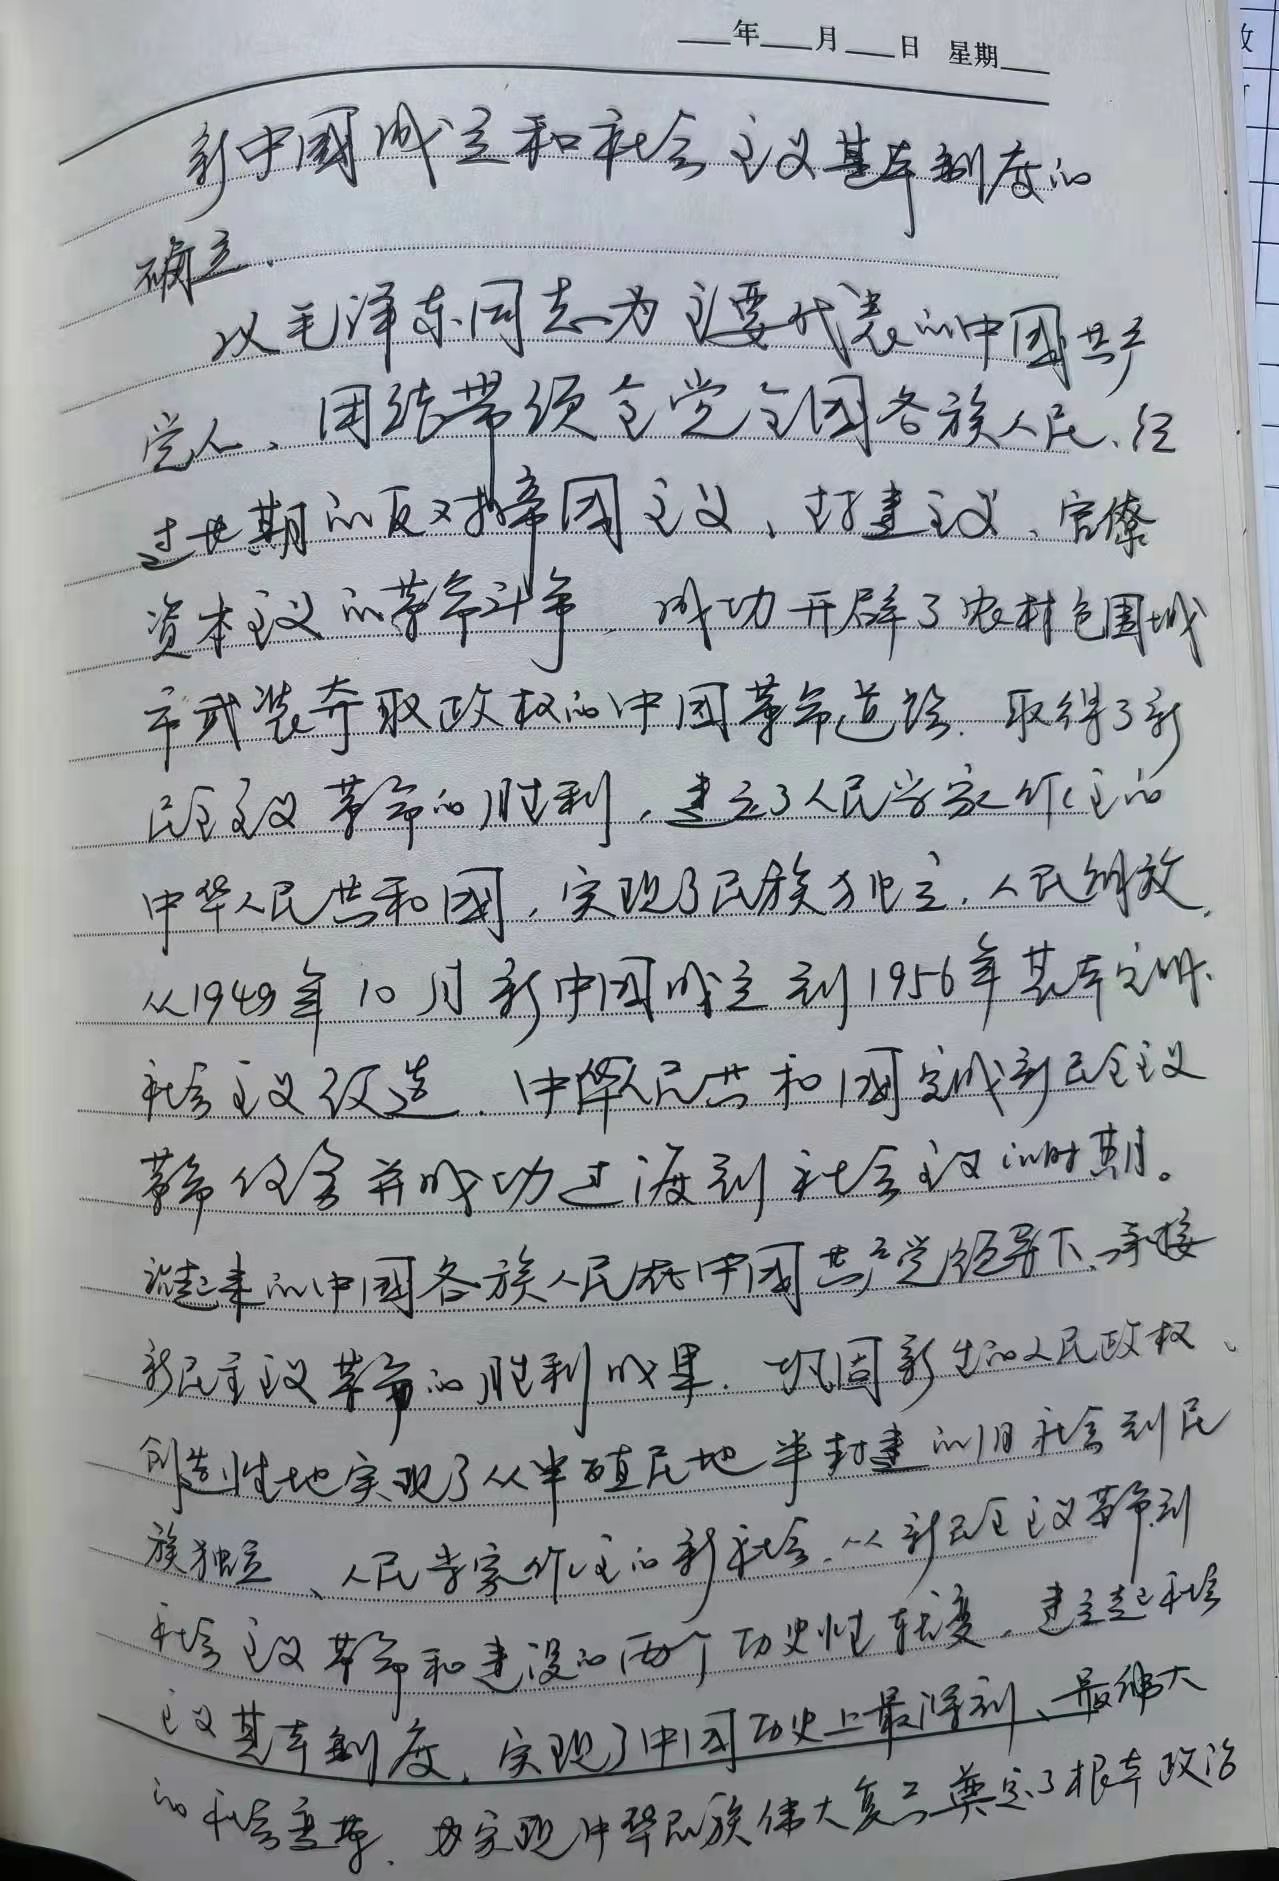 年 月 日 星期
新中國成立和社会主义基本制度的
确立.
以毛泽东同志为主要代表的中国共产
党人、团结带领全党全国各族人民、经
过长期的反对帝国主义、封建主义、官僚
资本主义的革命斗争，成功开辟了农村包围城
市武装夺取政权的中国革命道路. 取得了新
民主主义革命的胜利，建立了人民当家作主的
中华人民共和國，实现了民族独立. 人民解放,
从1949年10月新中国成立到1956年基本完成
社会主义改造，中华人民共和國完成新民主主义
革命任务并成功过渡到社会主义的时期。
站起来的中国各族人民在中國共产党领导下、承接
新民主主义革命的胜利成果. 巩固新生的人民政权、
创造性地实现了从半殖民地半封建的旧社会到民
族独立、人民当家作主的新社会. 从新民主主义革命到
社会主义革命和建设的两个历史性转变，建立起社会
主义基本制度，实现了中国历史上最深刻、最伟大
的社会变革，为实现中华民族伟大复兴奠定了根本政治